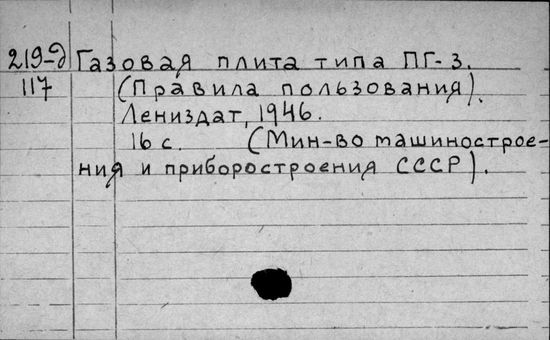 219-д Газовая плита типа ПГ-3.
117 (Правила пользования).
Лениздат, 1946.
16 с. (Мин-во машинострое-
ния и приборостроения СССР).